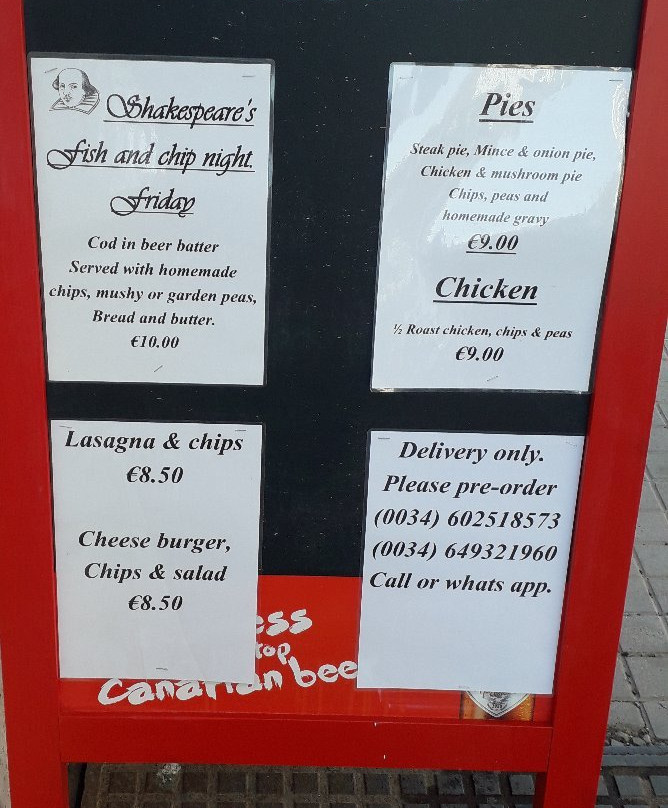 Shakespeare's
Fish and chip night.
Friday
Cod in beer batter
Served with homemade
chips, mushy or garden peas,
Bread and butter.
€10.00
Pies
Steak pie, Mince & onion pie,
Chicken & mushroom pie
Chips, peas and
homemade gravy
€9.00
Chicken
½ Roast chicken, chips & peas
€9.00
Lasagna & chips
€8.50
Cheese burger,
Chips & salad
€8.50
Delivery only.
Please pre-order
(0034) 602518573
(0034) 649321960
Call or whats app.
ess
top
Canarian bee